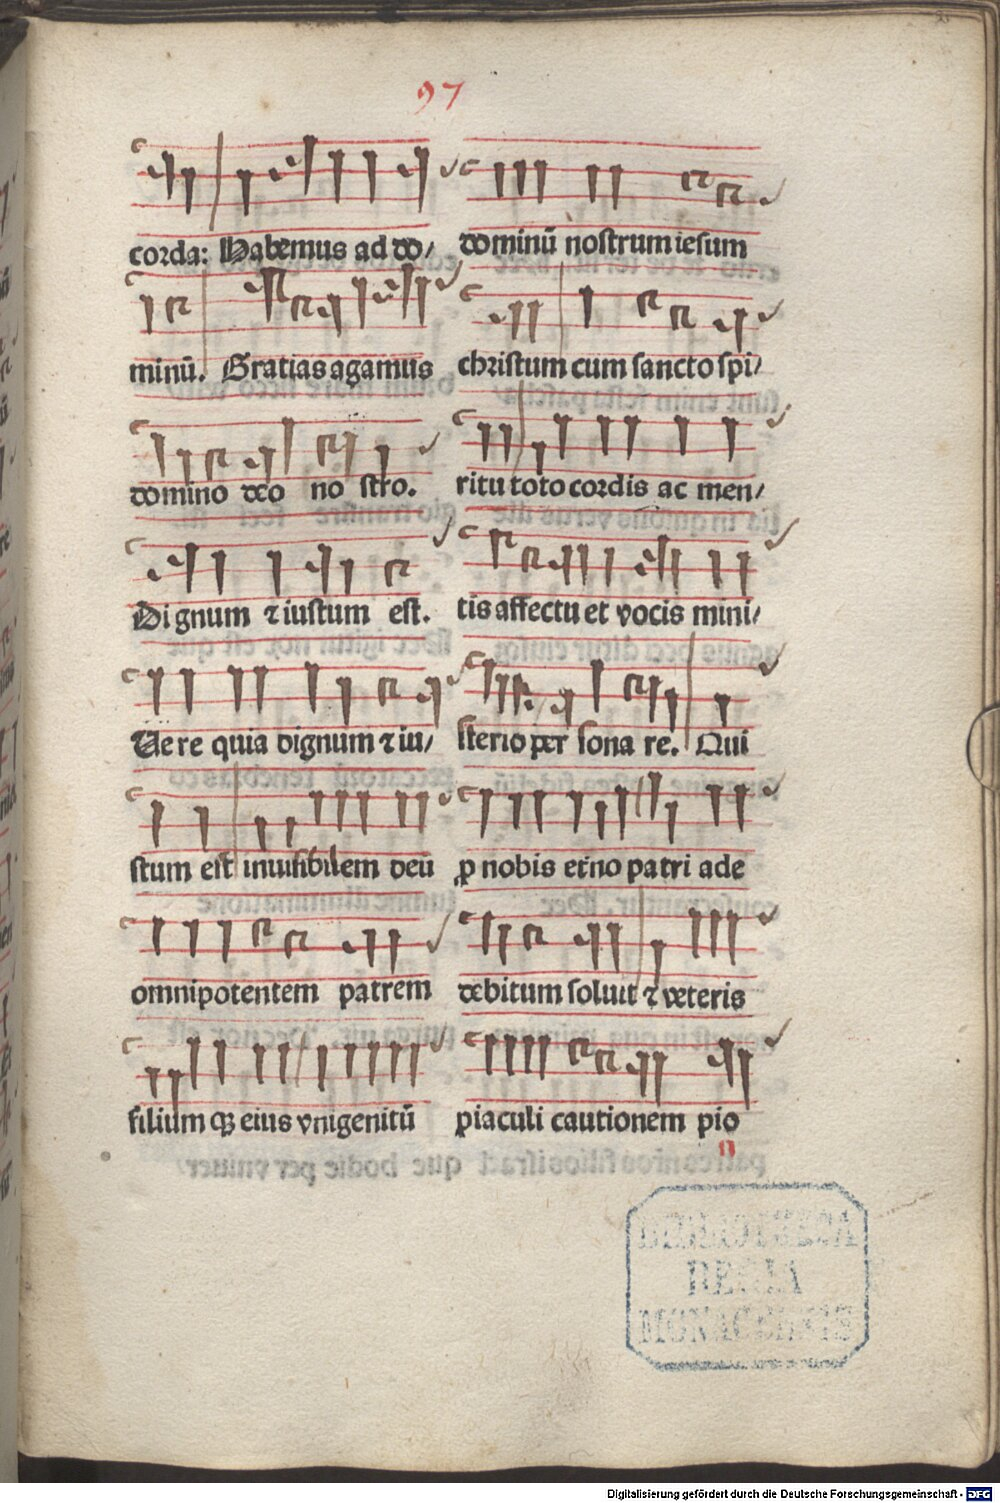 97
corda: Habemus ad do/
minū. Gratias agamus
domino deo no stro.
Di gnum ⁊ iustum est.
Uere quia dignum ⁊ iu/
stum est inuisibilem deū
omnipotentem patrem
filium qȝ eius vnigenitū
dominū nostrum iesum
christum cum sancto spi/
ritu toto cordis ac men/
tis affectu et vocis mini/
sterio per sona re. Qui
ꝓ nobis et̄no patri ade
debitum soluit ⁊ veteris
piaculi cautionem pio
n
BIBLIOTHECA
REGIA
MONACENSIS
Digitalisierung gefördert durch die Deutsche Forschungsgemeinschaft - DFG